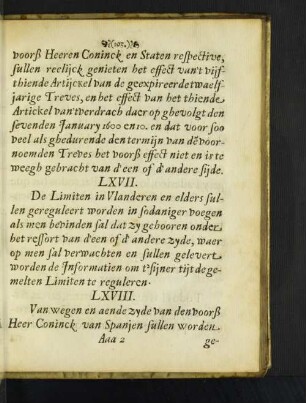 (103.)
voorß Heeren Coninck en Staten respective,
sullen reelijck genieten het effect van't vijf-
thiende Artijckel van de geexpireerde twaelf-
jarige Treves, en het effect van het thiende
Artickel van't verdrach daer op ghevolgt den
sevenden January 1600 en 10. en dat voor soo
veel als ghedurende den termijn van de voor-
noemden Treves het voorß effect niet en is te
weegh gebracht van d'een of d'andere sijde.
LXVII.
De Limiten in Vlanderen en elders sul-
len gereguleert worden in sodaniger voegen
als men bevinden sal dat zy gehooren onder
het ressort van d'een of d'andere zyde, waer
op men sal verwachten en sullen gelevert
worden de Informatien om t'sijner tijt de ge-
melten Limiten te reguleren.
LXVIII.
Van wegen en aende zyde van den voorß
Heer Coninck van Spanjen sullen worden
Aaa 2 ge-